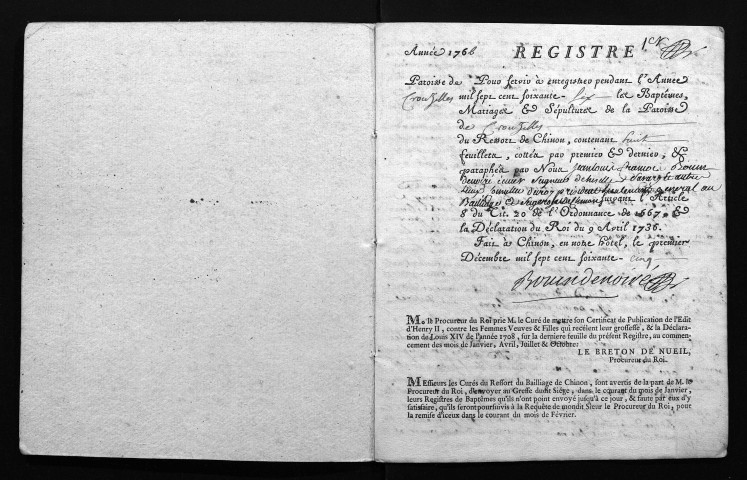 Année 1766 REGISTRE 1er
Paroisse de Pour servir à enregistrer pendant l'Année
Crouzilles mil sept cent soixante-six les Baptêmes,
Mariages & Sépultures de la Paroisse
de Crouzilles
du Ressort de Chinon, contenant huit
feuillets, cottés par premier & dernier, &
paraphés par Nous
Bailliage suivant l'Article
8 du Tit. 20 de l'Ordonnance de 1667, &
la Déclaration du Roi du 9 Avril 1736.
Fait à Chinon, en notre hôtel, le premier
Décembre mil sept cent soixante-cinq
Bouindenoiré
M. le Procureur du Roi prie M. le Curé de mettre son Certificat de Publication de l'Edit
d'Henry II, contre les Femmes Veuves & Filles qui recélent leur grossesse, & la Déclara-
tion de Louis XIV de l'année 1708, sur la derniere feuille du présent Registre, au commen-
cement des mois de Janvier, Avril, Juillet & Octobre.
LE BRETON DE NUEIL,
Procureur du Roi.
MEssieurs les Curés du Ressort du Bailliage de Chinon, sont avertis de la part de M. le
Procureur du Roi, d'envoyer au Greffe dudit Siége, dans le courant du mois de Janvier,
leurs Registres de Baptêmes qu'ils n'ont point envoyé jusqu'à ce jour, & faute par eux d'y
satisfaire, qu'ils seront poursuivis à la Requête de mondit Sieur le Procureur du Roi, pour
la remise d'iceux dans le courant du mois de Février.